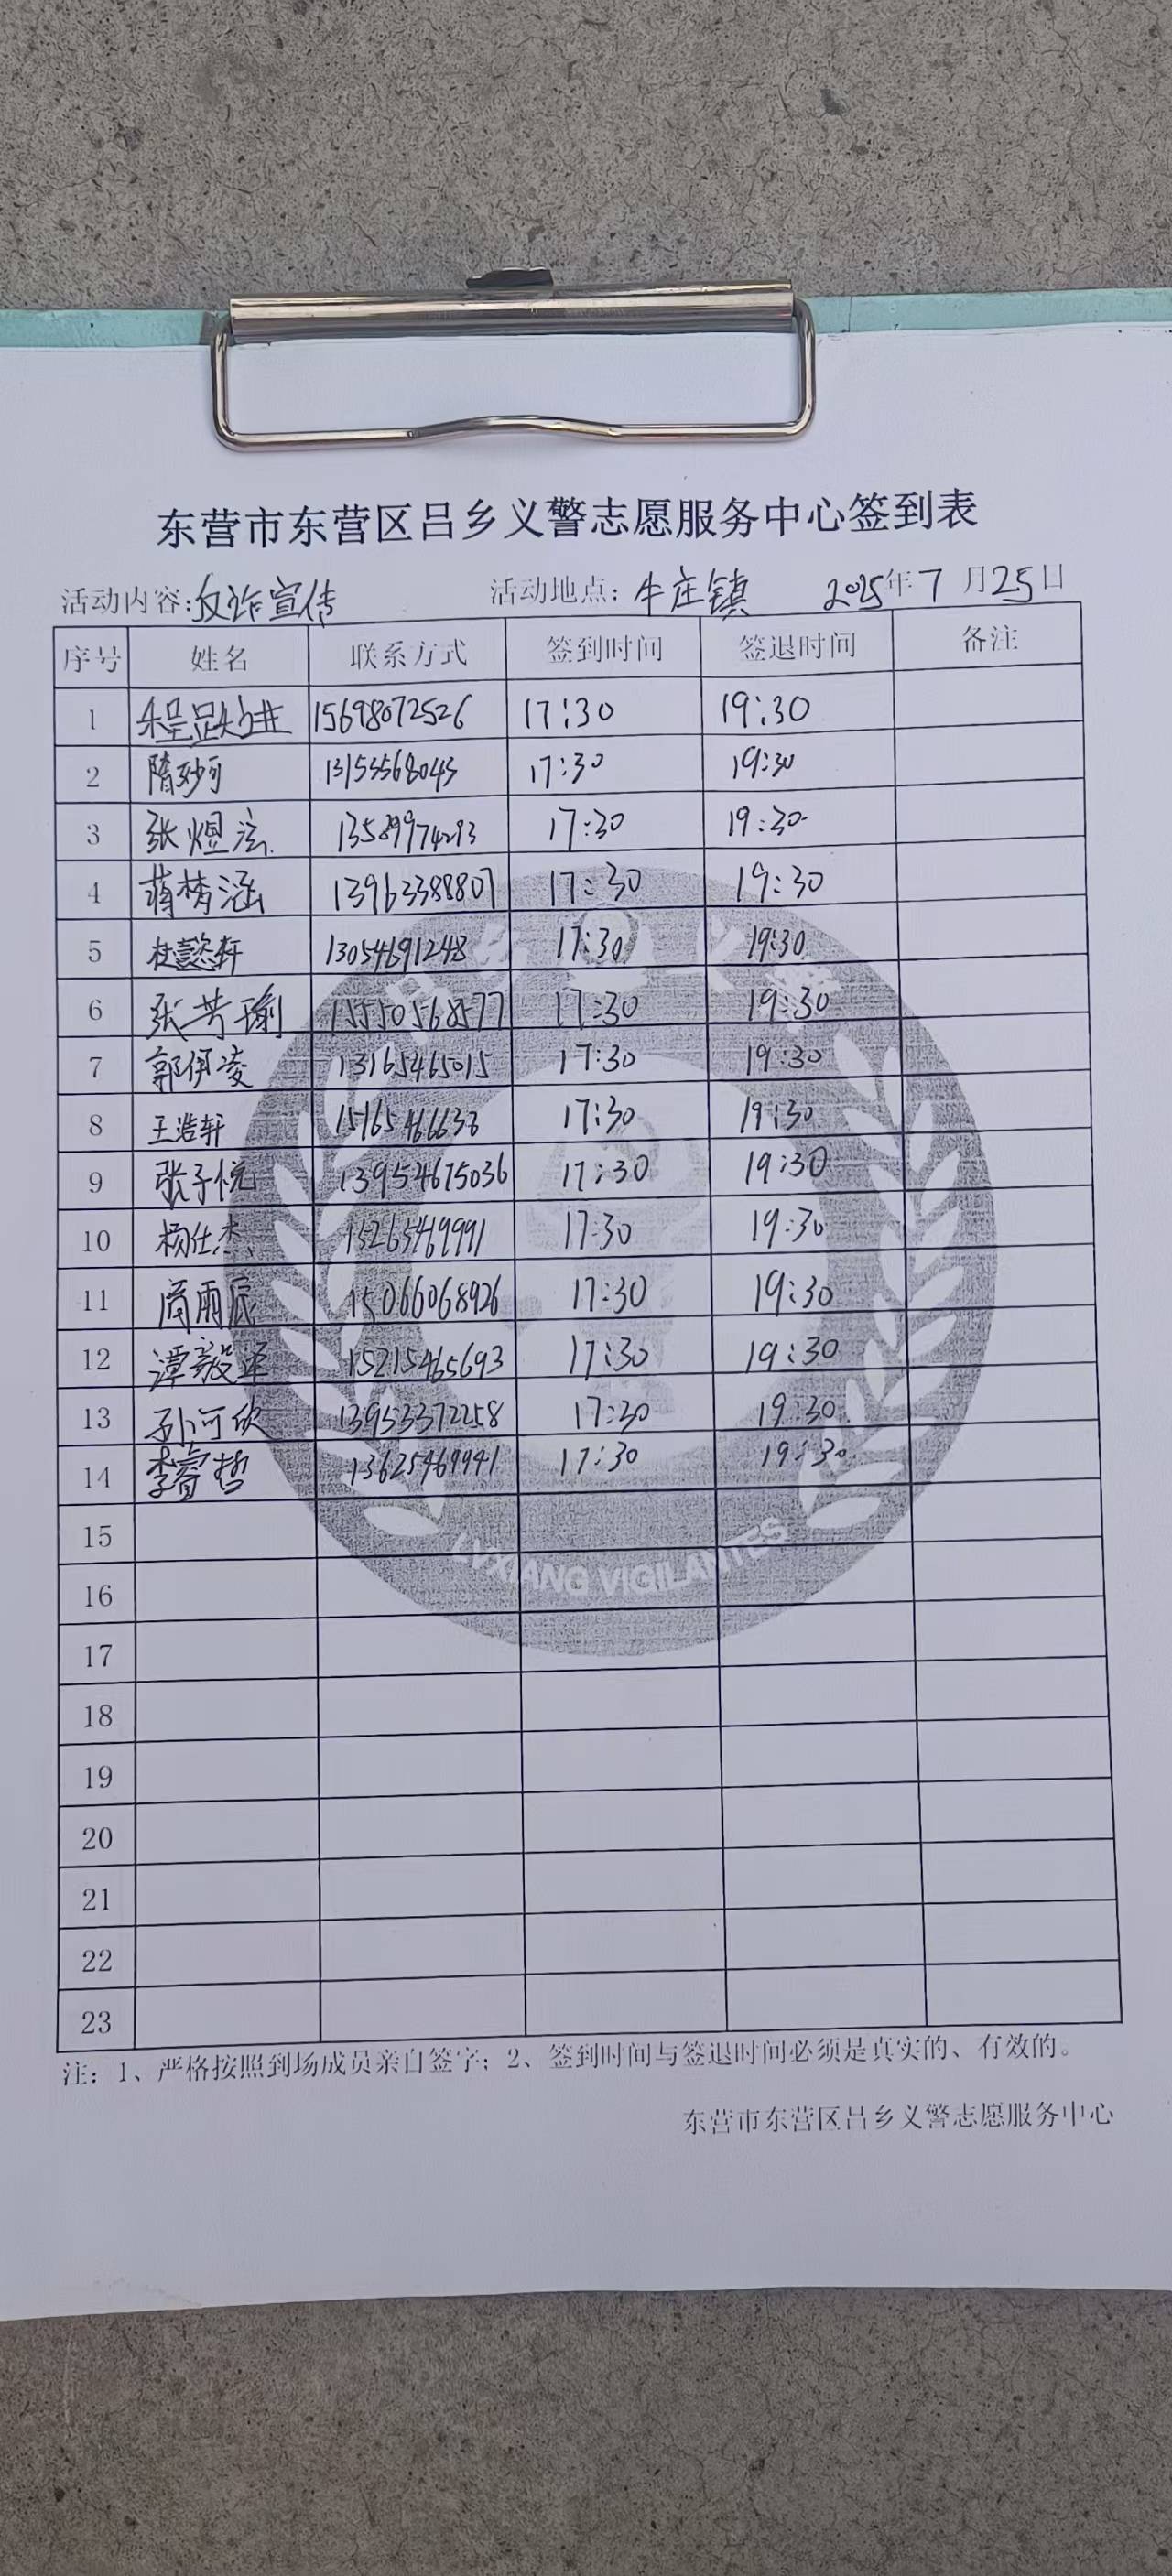 东营市东营区吕乡义警志愿服务中心签到表
活动内容:反诈宣传 活动地点:牛庄镇 2025年7月25日
序号 姓名 联系方式 签到时间 签退时间 备注
1 15698072526 17:30 19:30
2 隋妙可 13153568043 17:30 19:30
3 张煜泫 13589974293 17:30 19:30
4 蒋梦涵 13963388807 17:30 19:30
5 杜懿轩 13054691248 17:30 19:30
6 张芳瑜 15550568577 17:30 19:30
7 郭伊凌 13165465015 17:30 19:30
8 王浩轩 15165466638 17:30 19:30
9 张子悦 13954675036 17:30 19:30
10 杨仕杰 15265469991 17:30 19:30
11 商雨辰 15066068926 17:30 19:30
12 谭毅泽 15215465693 17:30 19:30
13 孙可欣 13953372258 17:30 19:30
14 李睿哲 13625469941 17:30 19:30
15
16
17
18
19
20
21
22
23
LVXIANG VIGILANTES
注：1、严格按照到场成员亲自签字；2、签到时间与签退时间必须是真实的、有效的。
东营市东营区吕乡义警志愿服务中心